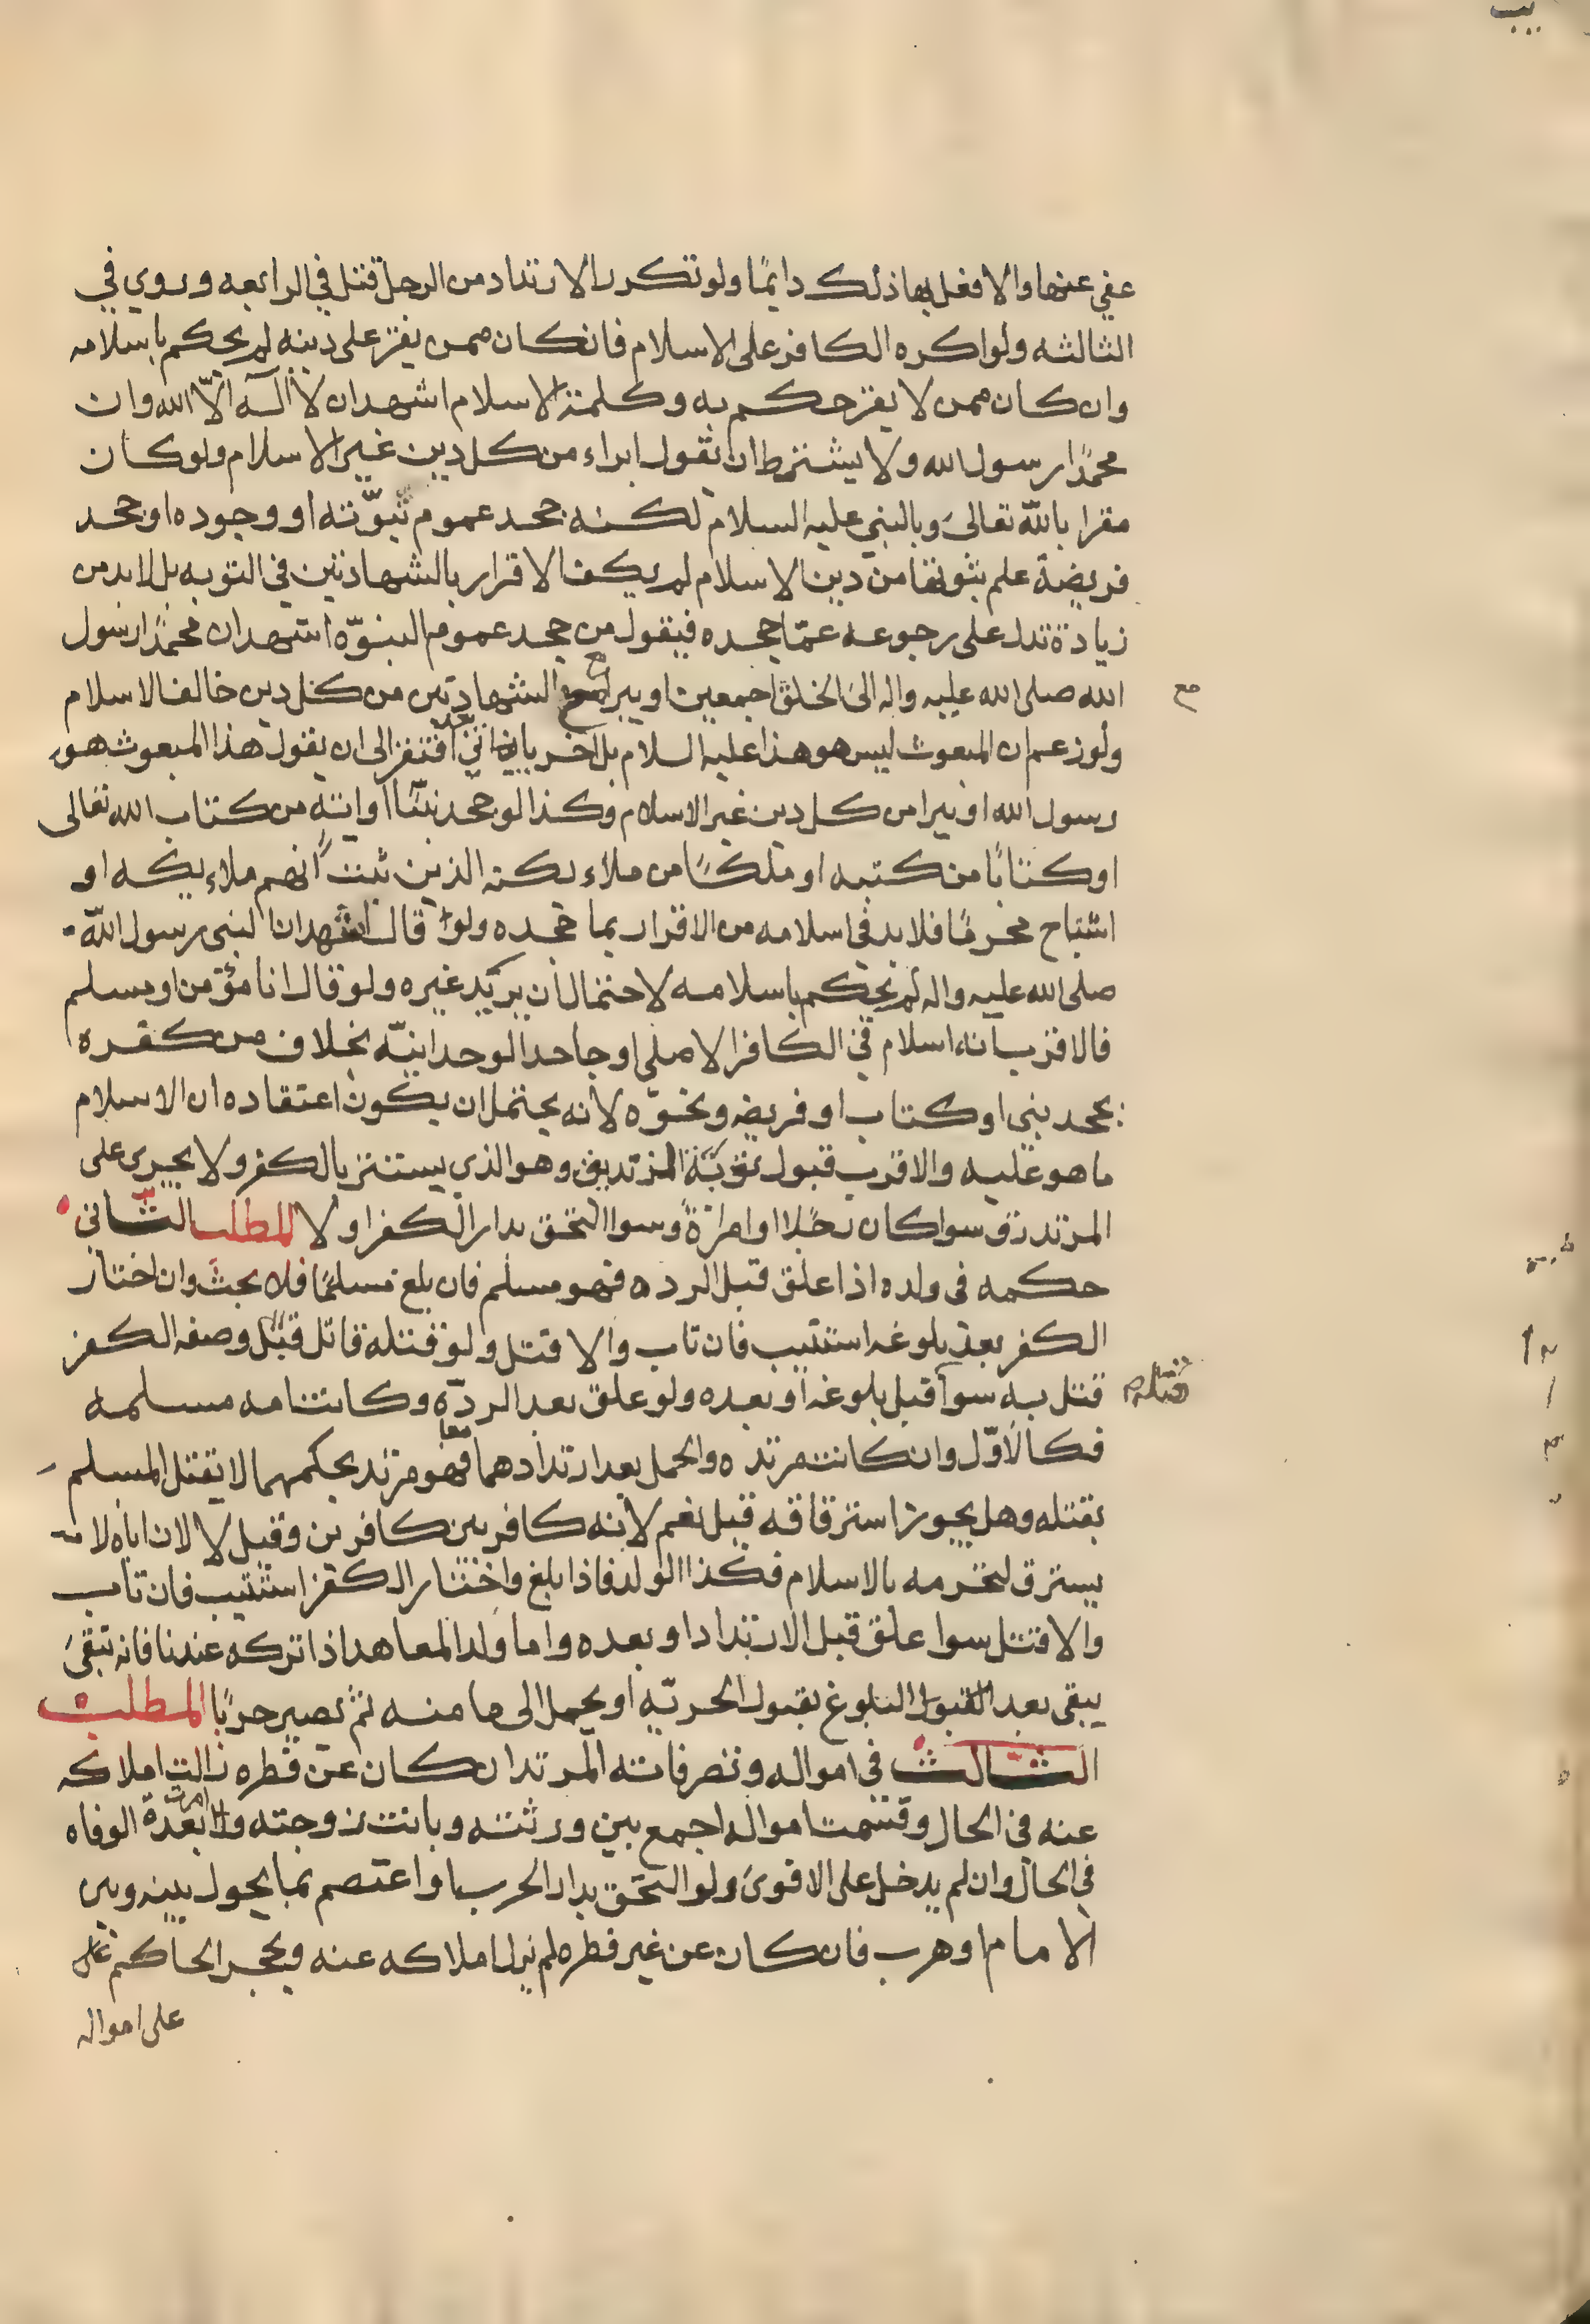 عفي عنها والا فعل بها ذلك دايمًا ولو تكرر الارتداد من الرجل قتل في الرابعه وروي في
الثالثه ولو اكره الكافر على الاسلام فان كان ممن يقر على دينه لم يحكم باسلامه
وان كان ممن لا يقر حكم به وكلمة الاسلام اشهد ان لا اله الّا الله وان
محمدًا رسول الله ولا يشترط ان يقول ابراء من كل دين غير الاسلام ولو كان
مقرا بالله تعالى وبالنبي عليه السلام لكنه جحد عموم نبوّته او وجوده او جحد
فريضة علم ثبوتها من دين الاسلام لم يكف الاقرار بالشهادتين في التوبه بل لابد من
زيادة تدل على رجوعه عمّا جحده فيقول من جحد عموم النبوّه اشهد ان محمدًا رسول
الله صلى الله عليه واله الى الخلق اجمعين او يبرا مع الشهادتين من كل دين خالف الاسلام
مع
ولو زعم ان المبعوث ليس هو هذا عليه السلام بل اخر ياتي بعد افتقر الى ان يقول هذا المبعوث هو
رسول الله او يبرا من كل دين غير الاسلام وكذا لو جحد نبيًّا او اية من كتاب الله تعالى
او كتابًا من كتبه او ملكًا من ملاءيكته الذين ثبت انهم ملاءيكه او
استباح محرمًا فلا بد في اسلامه من الاقرار بما جحده ولو قال اشهد ان النبي رسول الله
صلى الله عليه واله لم يحكم باسلامه لاحتمال ان يريد غيره ولو قال انا مؤمن او مسلم
فالاقرب انه اسلام في الكافر الاصلي او جاحد الوحدانيّه بخلاف من كفره
بجحد نبي او كتاب او فريضه ونحوه لانه يحتمل ان يكون اعتقاده ان الاسلام
ما هو عليه والاقرب قبول توبة الزنديق وهو الذي يستتر بالكفر ولا يجري على
المرتد رق سوا كان رجلا او امراة وسوا التحق بدار الكفر او لا المطلب الثاني
حكمه في ولده اذا علق قبل الرده فهو مسلم فان بلغ مسلمًا فلا بحث وان اختار
الكفر بعد بلوغه استتيب فان تاب والا قتل ولو قتله قاتل قبل وصفه الكفر
قتل به سوآ قبل بلوغه او بعده ولو علق بعد الردّه وكانت امه مسلمه
قتله
فكالاوّل وان كانت مرتده والحمل بعد ارتدادهما معا فهو مرتد بحكمهما لا يقتل المسلم
بقتله وهل يجوز استرقاقه قيل نعم لانه كافر بين كافرين وقيل لا لان اباه لا
يسترق لتحرمه بالاسلام فكذا الولد فاذا بلغ واختار الكفر استتيب فان تاب
والا قتل سوا علق قبل الارتداد او بعده واما ولد المعاهد اذا تركه عندنا فانه تبقى
يبقى بعد القبول البلوغ بقبول الجريه او يحمل الى مامنه ثم يصير حربًا المطلب
الثالث في امواله وتصرفاته المرتد ان كان عن فطره زالت املاكه
عنه في الحال وقسمت امواله اجمع بين ورثته وبانت زوجته وامرت بعدة الوفاه
في الحال وان لم يدخل على الاقوى ولو التحق بدار الحرب او اعتصم بما يحول بينه وبين
الامام او هرب فان كان عن غير فطره لم تزل املاكه عنه ويحجر الحاكم على
على امواله